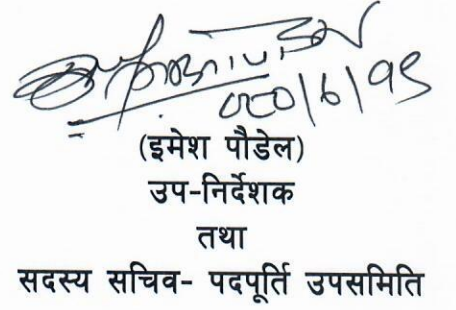 (इमेश पौडेल)
उप-निर्देशक
तथा
सदस्य सचिव- पदपूर्ति उपसमिति